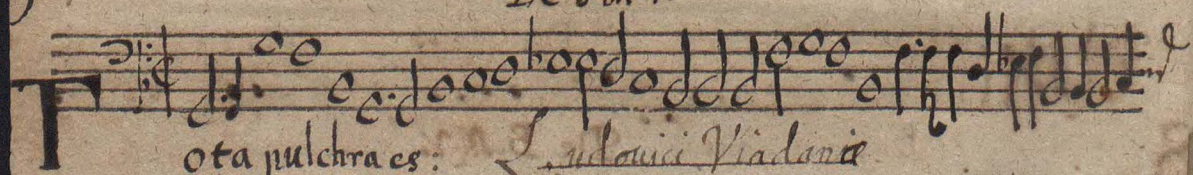 Tota pulchra es: Ludouici Viadanæ